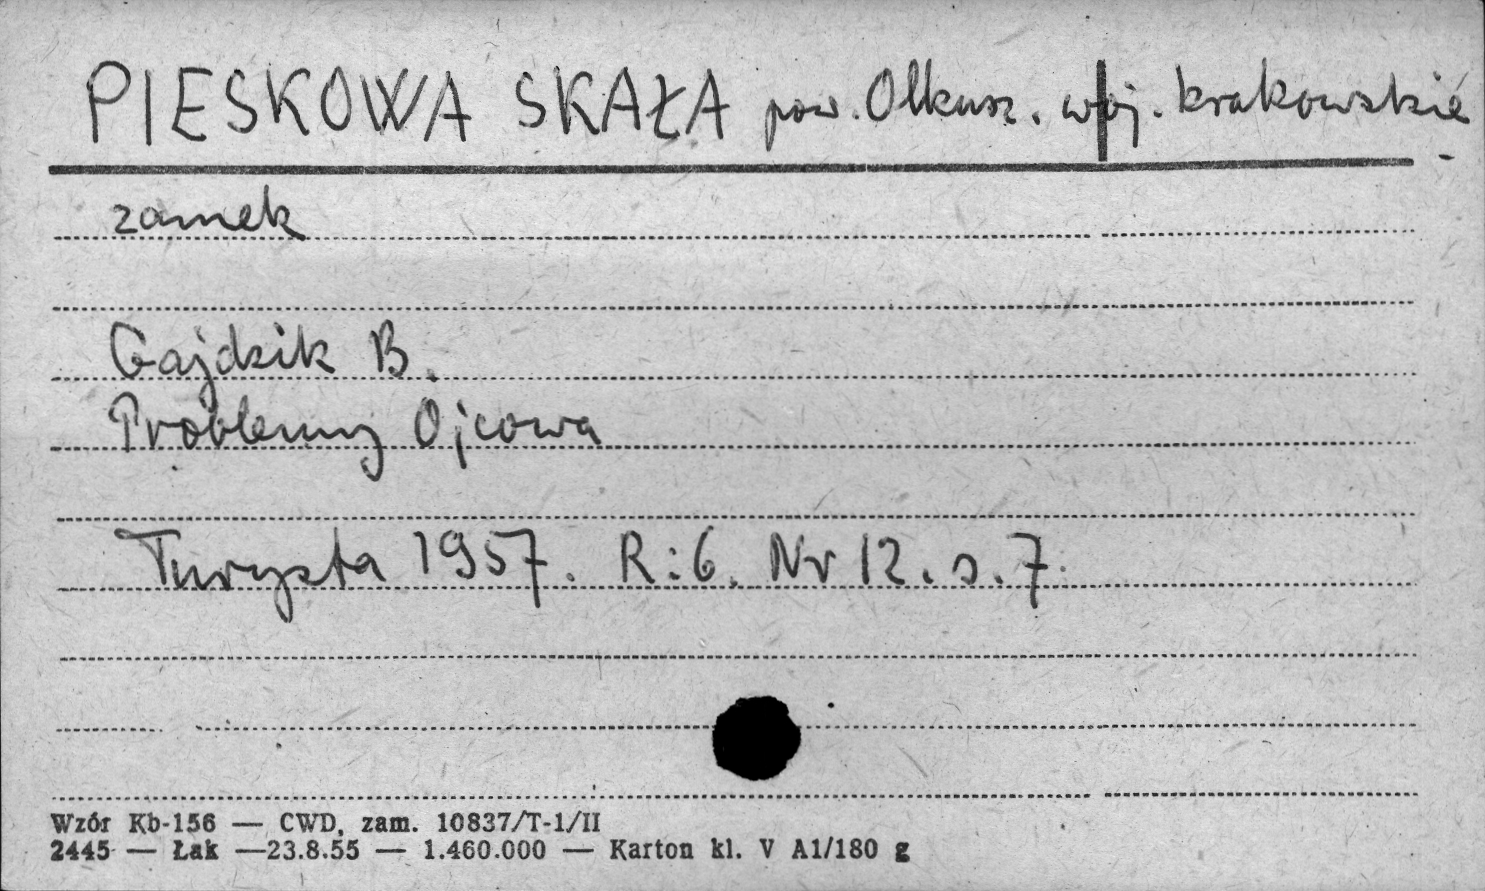 PIESKOWA SKAŁA pow. Olkusz. woj. krakowskie
zamek
Gajdzik B.
Problemy Ojcowa
Turysta 1957. R:6. Nr 12. s. 7.
Wzór Kb-156 — CWD, zam. 10837/T-1/II
2445 — Łak —23.8.55 — 1.460.000 — Karton kl. V A1/180 g